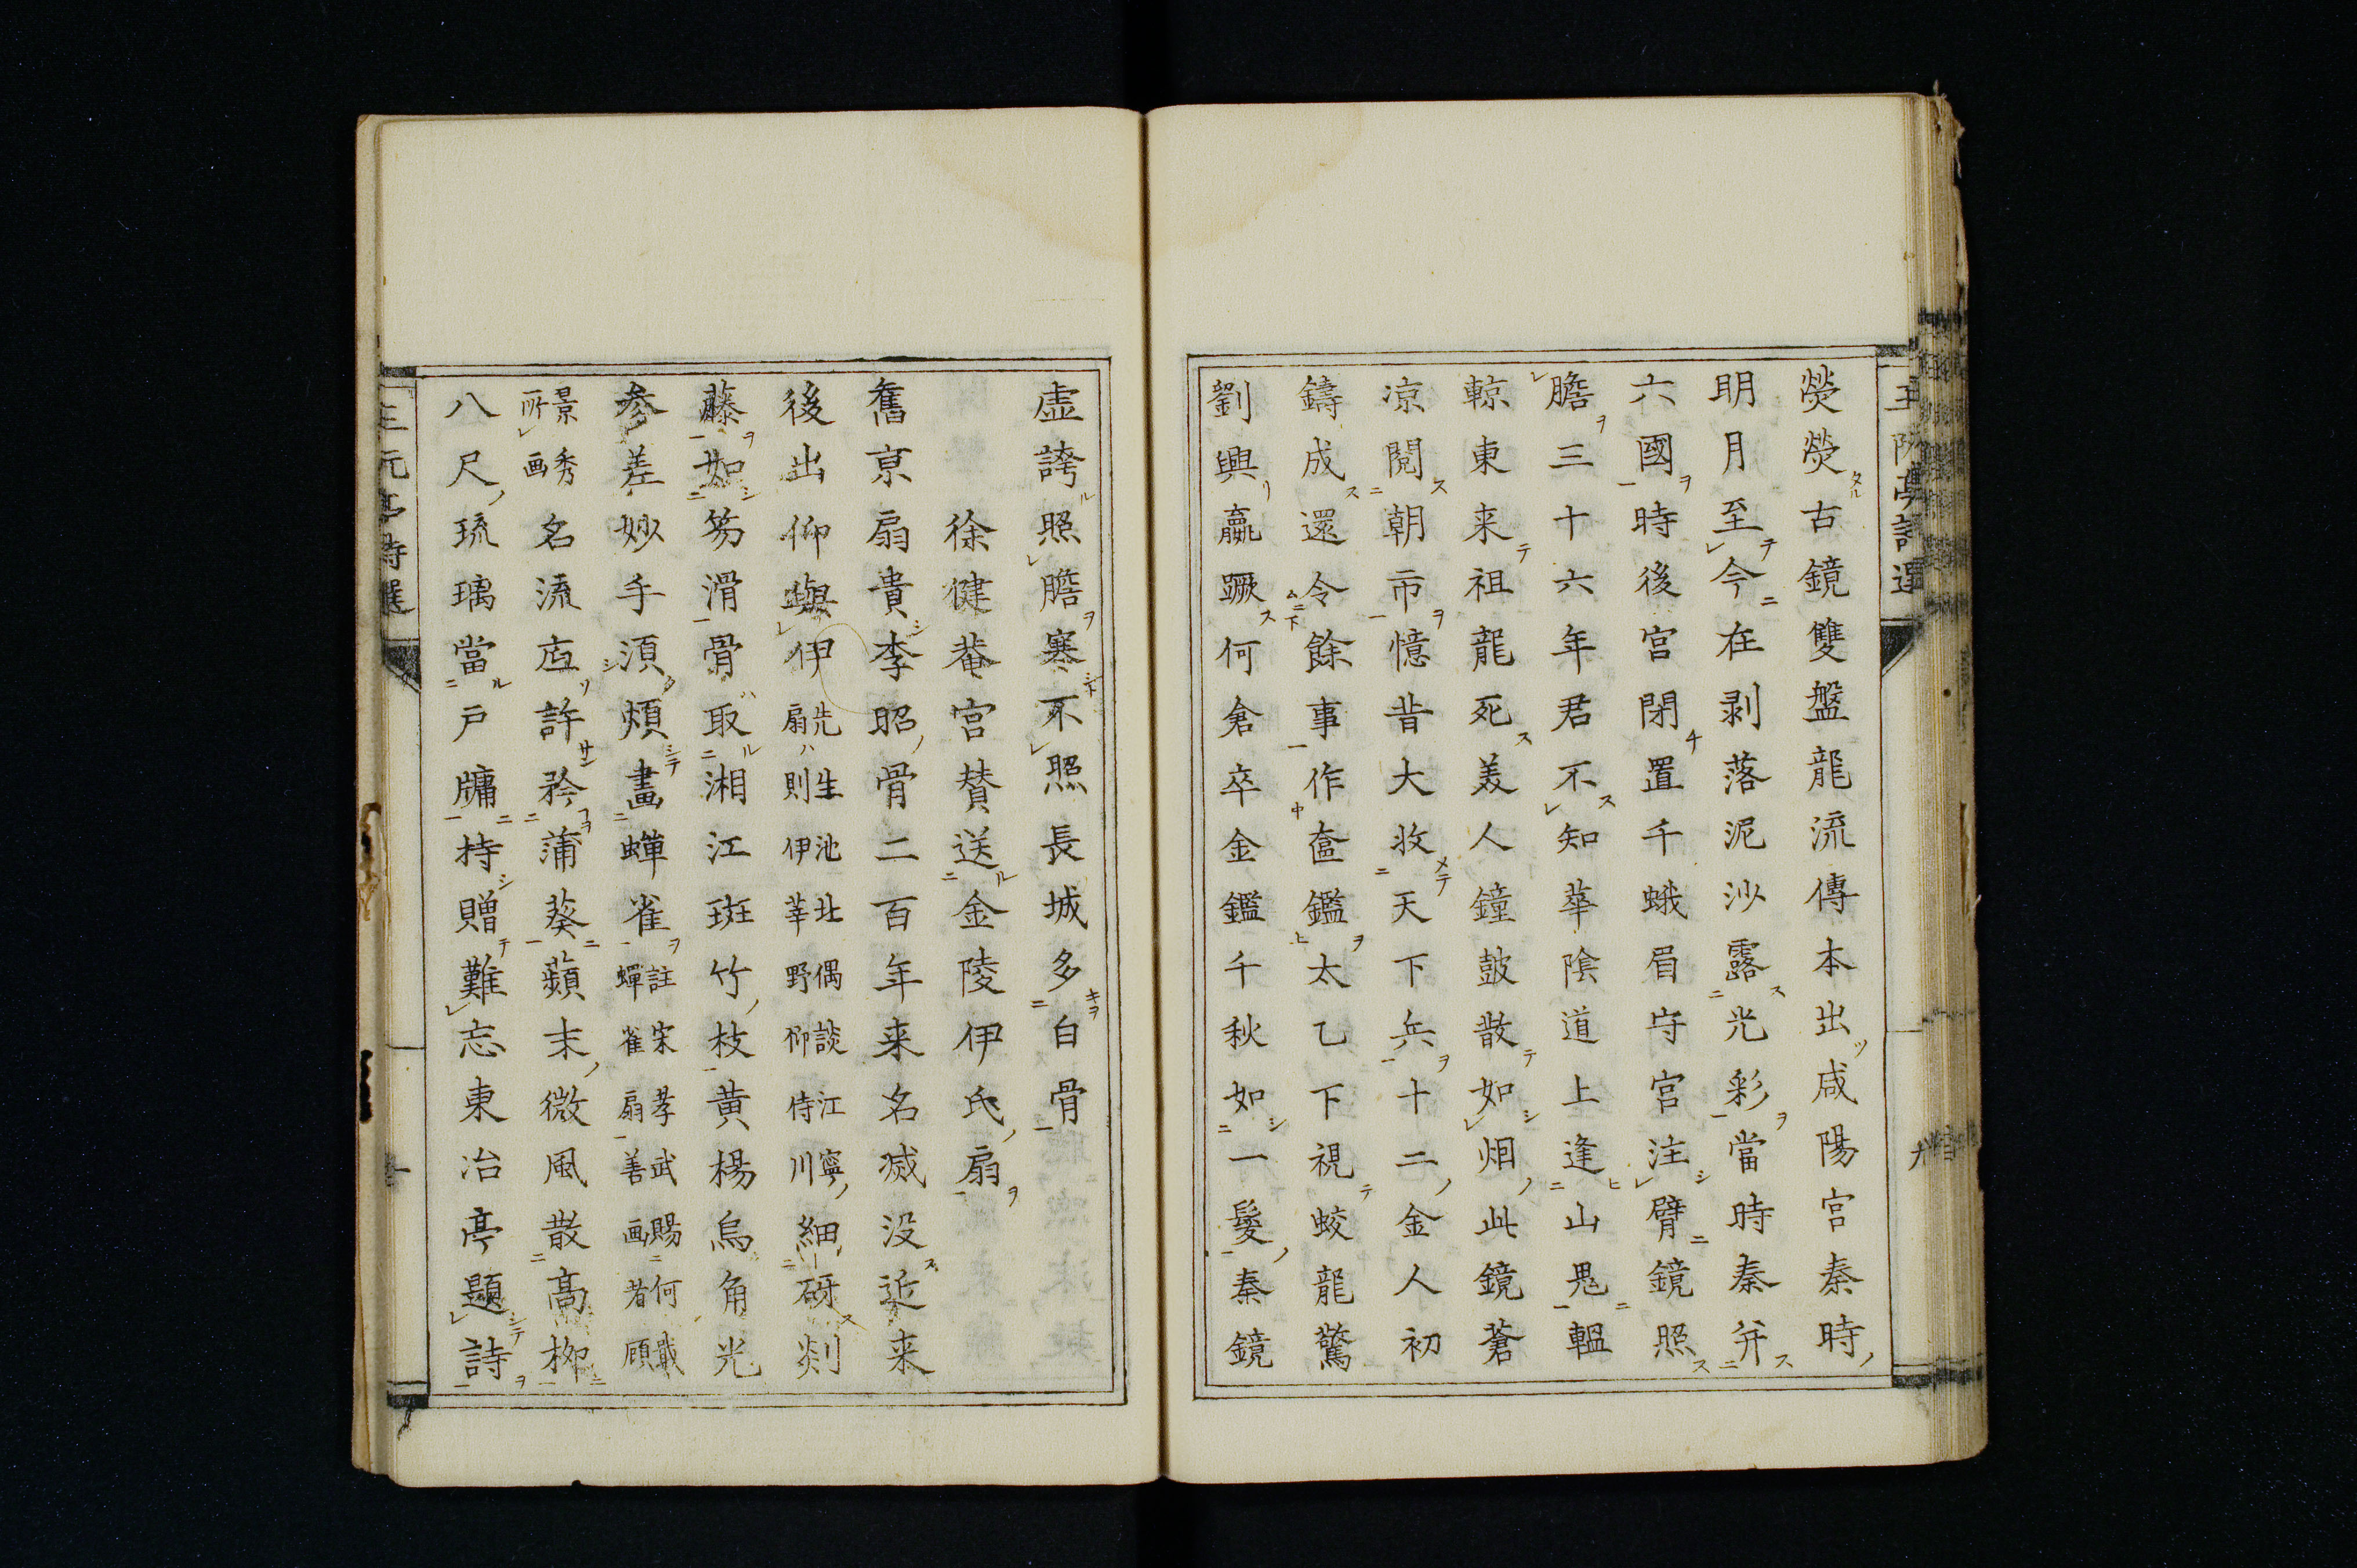 熒熒古鏡雙盤龍流傳本出咸陽宮秦時
明月至今在剥落泥沙露光彩當時秦并
六國時後宮閉置千蛾眉守宮注臂鏡照
膽三十六年君不知華陰道上逢山鬼轀
輬東来祖龍死美人鐘鼓散如烟此鏡蒼
凉閱朝市憶昔大收天下兵十二金人初
鑄成還令餘事作奩鑑太乙下視蛟龍驚
劉興嬴蹶何倉卒金鑑千秋如一髮秦鏡
虛誇照膽寒不照長城多白骨
徐健菴宮贊送金陵伊氏扇
舊京扇貴李昭骨二百年来名减没近来
後出仰與伊先生池北偶談江寧扇則伊莘野仰侍川細砑剡
藤如笏滑骨取湘江斑竹枝黄楊烏角光
參差妙手須煩畫蟬雀註宋孝武賜何戢蟬雀扇善画者顧
景秀所画名流压許矜蒲葵蘋末微風散高柳
八尺琉璃當户牗持贈難忘東冶亭題詩